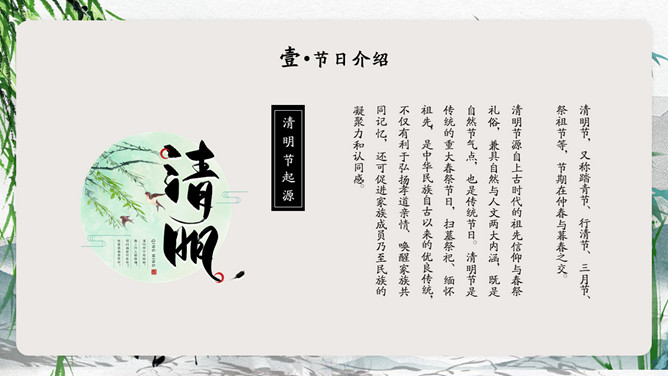 壹·节日介绍
清明节，又称踏青节、行清节、三月节、
祭祖节等，节期在仲春与暮春之交。
清明节源自上古时代的祖先信仰与春祭
礼俗，兼具自然与人文两大内涵，既是
自然节气点，也是传统节日。清明节是
传统的重大春祭节日，扫墓祭祀、缅怀
祖先，是中华民族自古以来的优良传统，
不仅有利于弘扬孝道亲情、唤醒家族共
同记忆，还可促进家族成员乃至民族的
凝聚力和认同感。
清明节起源
清明